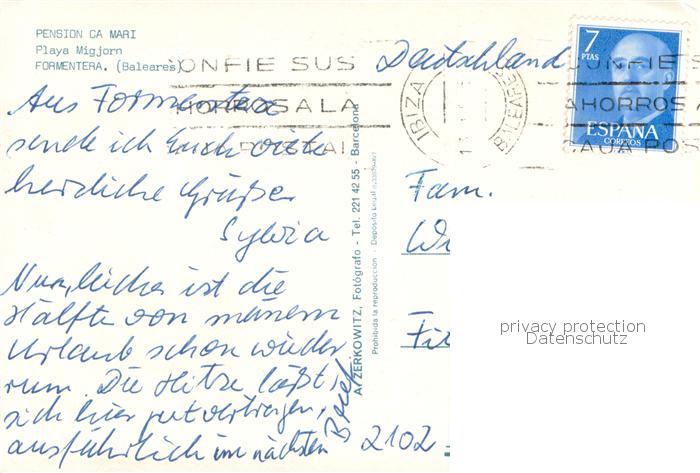 PENSION CA MARI
Playa Migjorn
FORMENTERA. (Baleares)
CONFIE SUS
AHORROS A LA
CAJA POSTAL
IBIZA
(BALEARES)
7
PTAS
ESPAÑA
CORREOS
CONFIE S
AHORROS
CAJA POS
Deutschland
Aus Formentera
sende ich Euch viele
herzliche Grüße
Sylvia
Nun, leider ist die
Hälfte von meinem
Urlaub schon wieder
rum. Die Hitze läßt
sich hier gut ertragen,
ausführlich im nächsten
Brief
A. ZERKOWITZ, Fotógrafo - Tel. 221 42 55 - Barcelona
Prohibida la reproducción - Depósito Legal
Fam.
Wi
2102
privacy protection
Datenschutz